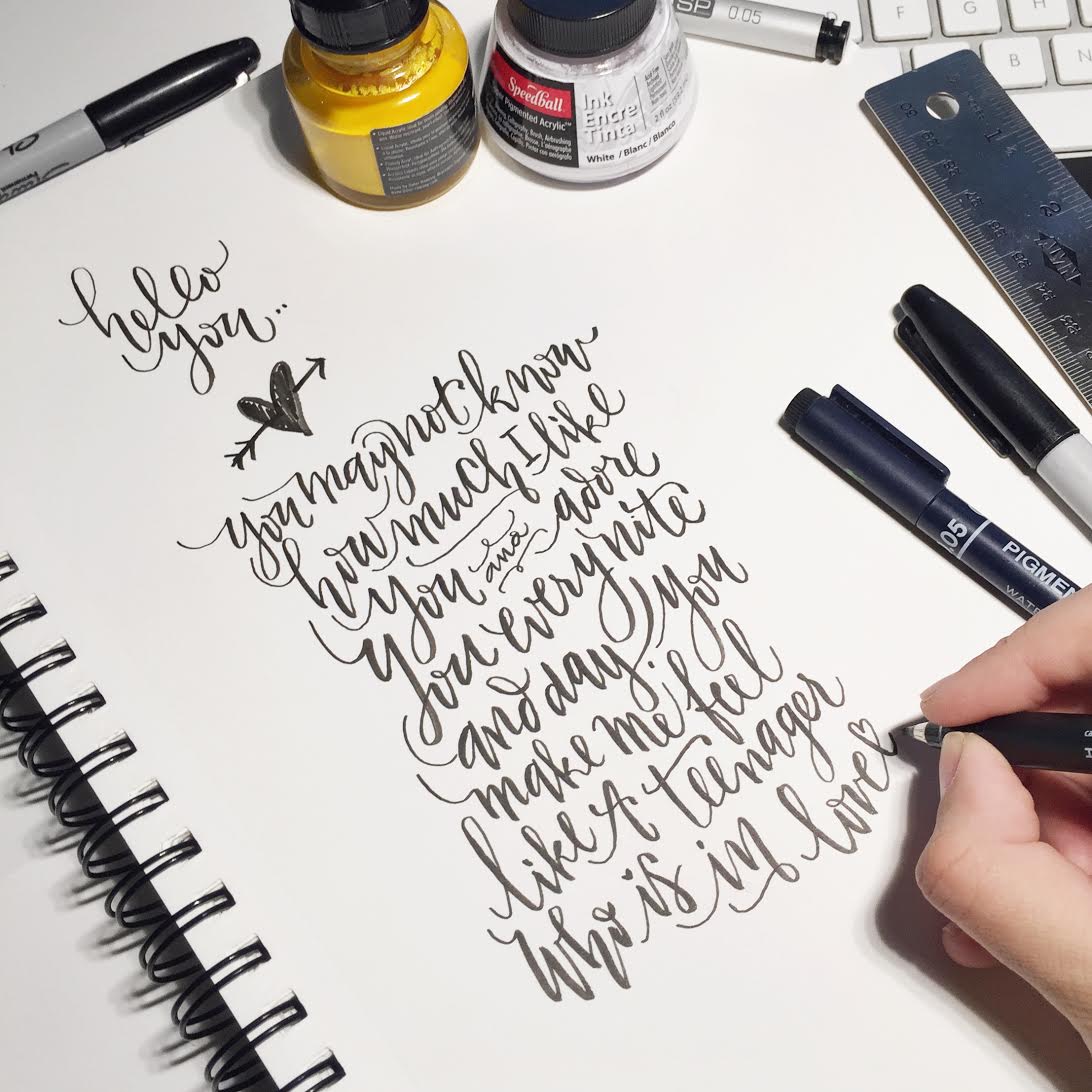 SP 0.05
F G H
B N
Speedball
Pigmented Acrylic™
Ink
Encre
Tinta
White / Blanc / Blanco
hello
you..
you may not know
how much I like
you and adore
you every nite
and day, you
make me feel
like A teenager
who is in love
05 PIGMEN
WATE